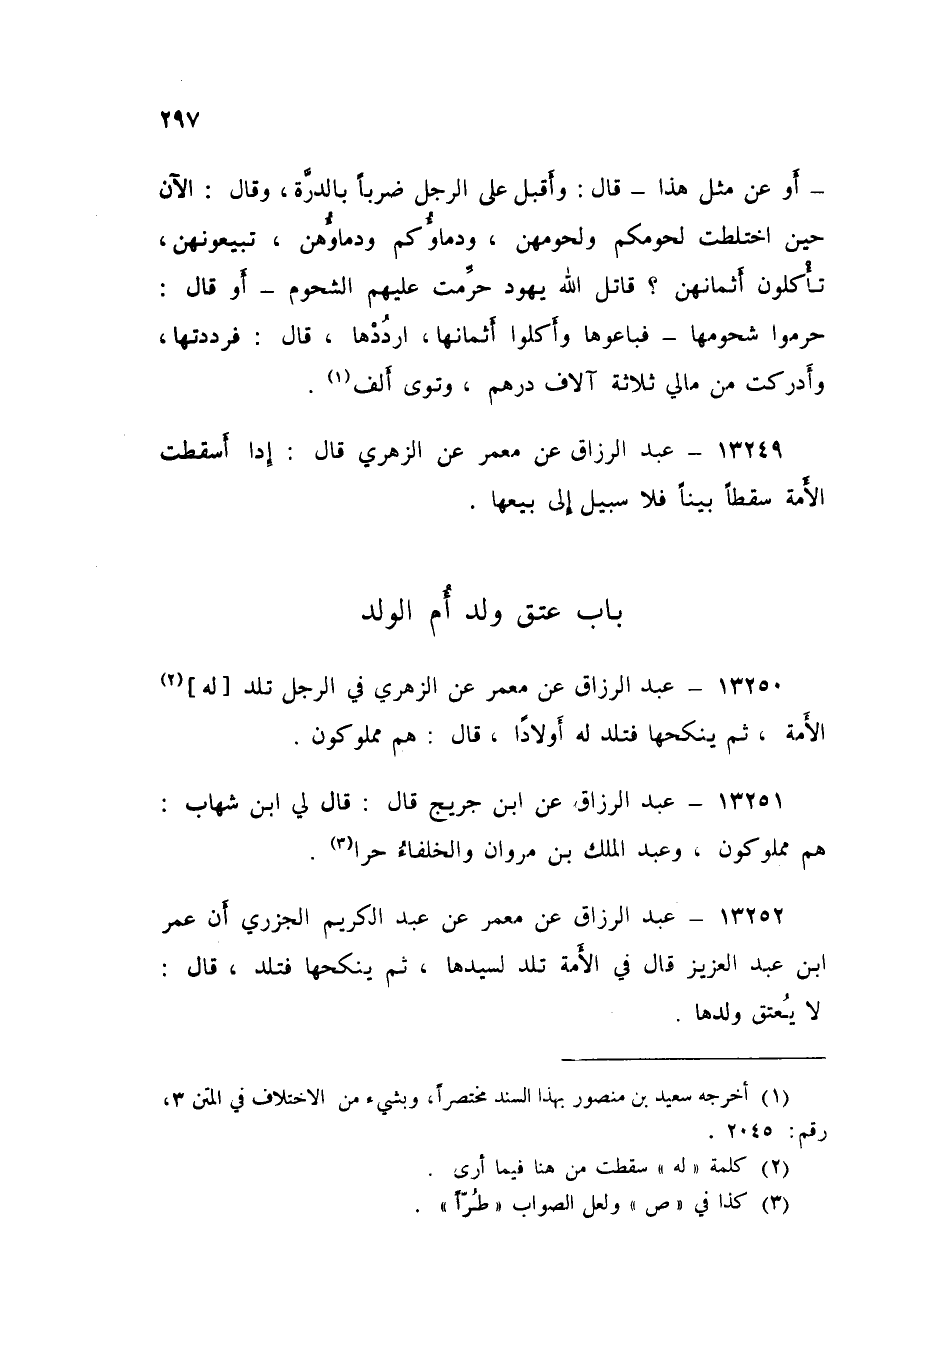 ٢٩٧
ـ أَو عن مثل هذا ـ قال : وأَقبل على الرجل ضرباً بالدرَّة ، وقال : الآن
حين اختلطت لحومكم ولحومهن ، ودماؤُكم ودماؤُهن ، تبيعونهن ،
تأْكلون أَثمانهن ؟ قاتل الله يهود حرِّمت عليهم الشحوم ـ أَو قال :
حرموا شحومها ـ فباعوها وأَكلوا أَثمانها ، اردُدْها ، قال : فرددتها ،
وأَدركت من مالي ثلاثة آلاف درهم ، وتوى أَلف(١) .
١٣٢٤٩ ـ عبد الرزاق عن معمر عن الزهري قال : إدا أَسقطت
الأَمة سقطاً بيناً فلا سبيل إلى بيعها .
باب عتق ولد أُم الولد
١٣٢٥٠ ـ عبد الرزاق عن معمر عن الزهري في الرجل تلد [ له ](٢)
الأَمة ، ثم ينكحها فتلد له أَولادًا ، قال : هم مملوكون .
١٣٢٥١ ـ عبد الرزاق عن ابن جريج قال : قال لي ابن شهاب :
هم مملوكون ، وعبد الملك بن مروان والخلفاءُ حرا(٣) .
١٣٢٥٢ ـ عبد الرزاق عن معمر عن عبد الكريم الجزري أَن عمر
ابن عبد العزيز قال في الأَمة تلد لسيدها ، ثم ينكحها فتلد ، قال :
لا يُعتق ولدها .
(١) أخرجه سعيد بن منصور بهذا السند مختصراً ، وبشيء من الاختلاف في المتن ٣ ،
رقم : ٢٠٤٥ .
(٢) كلمة « له » سقطت من هنا فيما أرى .
(٣) كذا في « ص » ولعل الصواب « طُرّاً » .